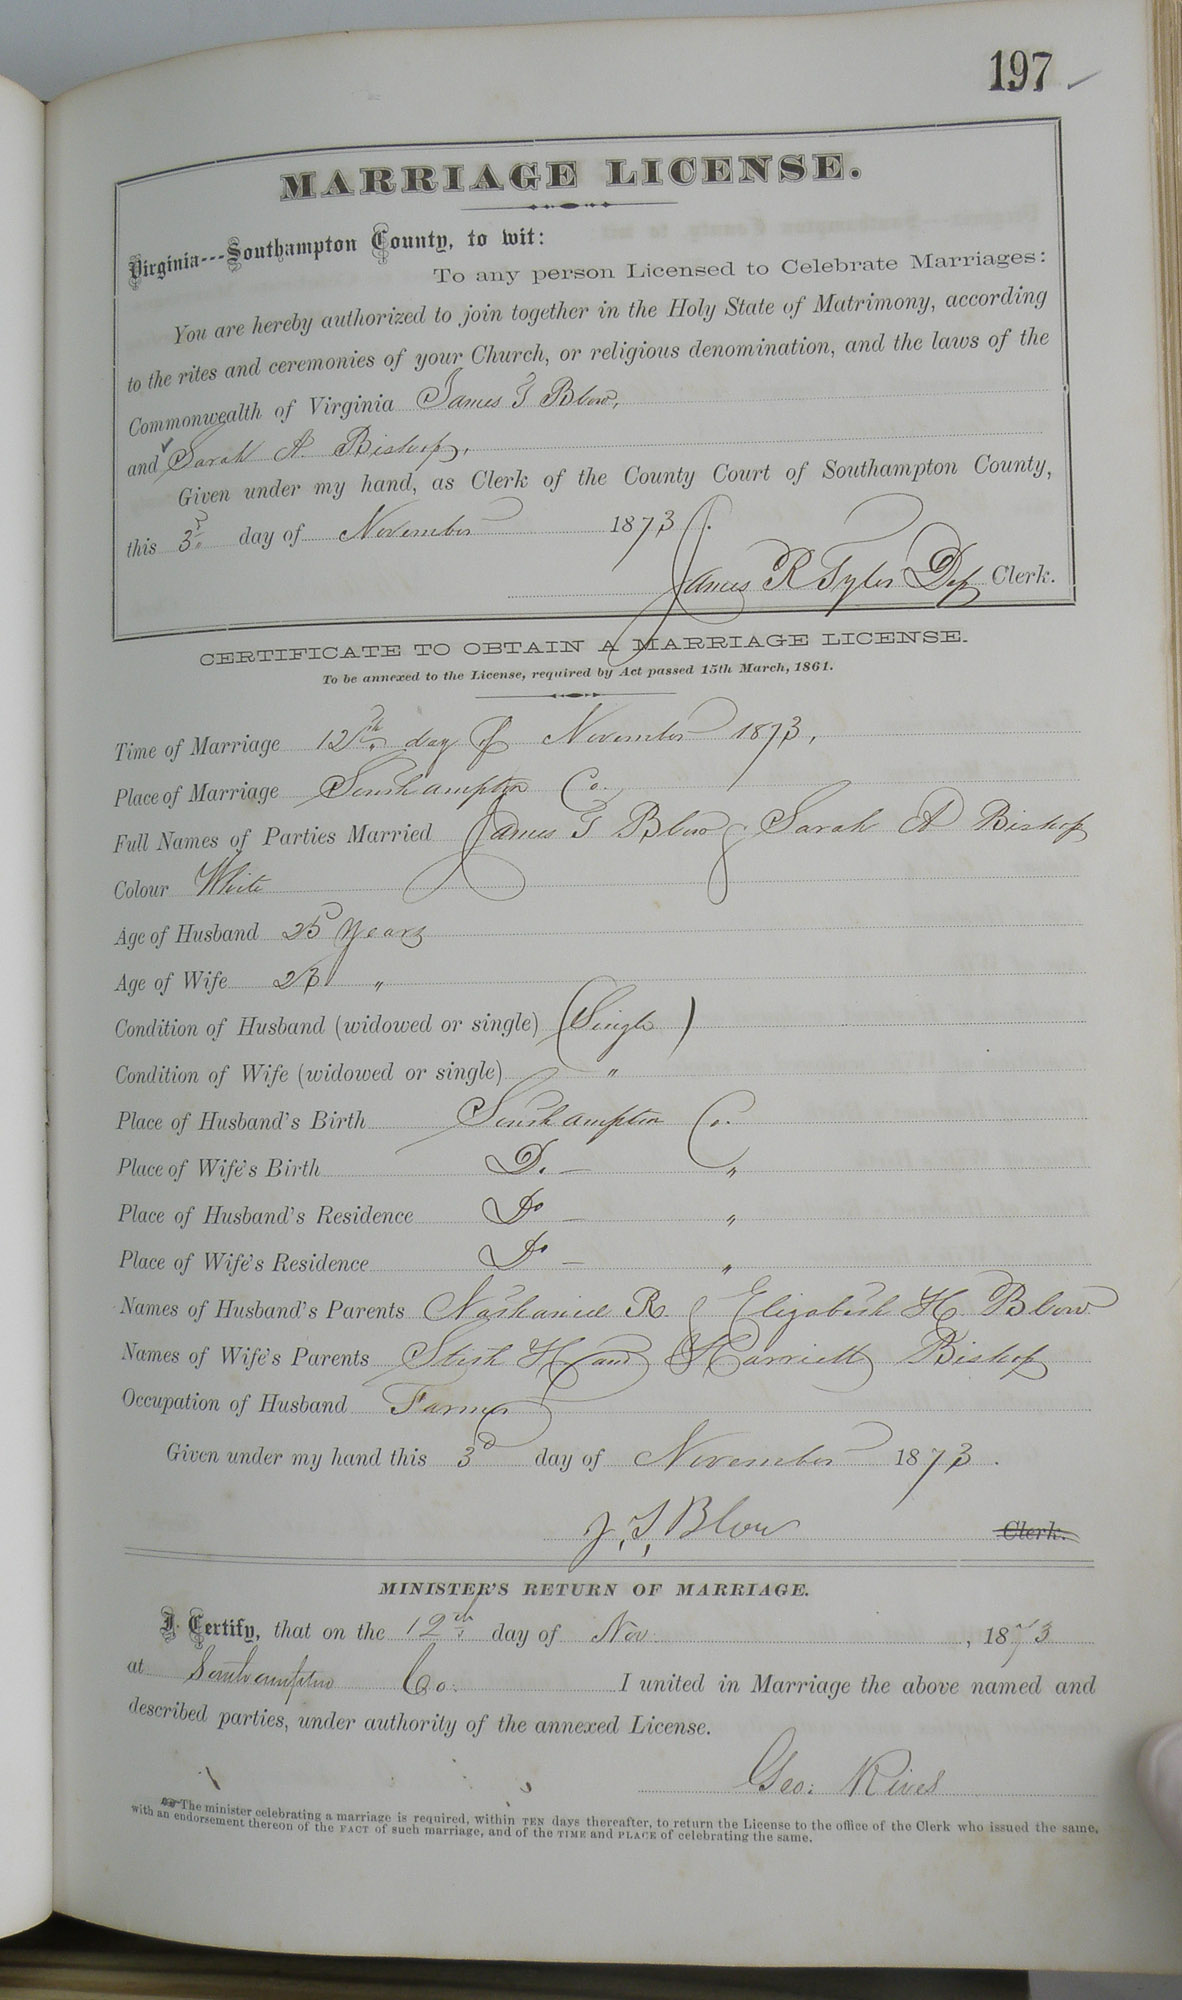 197
MARRIAGE LICENSE.
Virginia---Southampton County, to wit:
To any person Licensed to Celebrate Marriages:
You are hereby authorized to join together in the Holy State of Matrimony, according
to the rites and ceremonies of your Church, or religious denomination, and the laws of the
Commonwealth of Virginia James T Blow,
and Sarah A. Bishop,
Given under my hand, as Clerk of the County Court of Southampton County,
this 3d. day of November 1873.
James R Tyler Dep Clerk.
CERTIFICATE TO OBTAIN A MARRIAGE LICENSE.
To be annexed to the License, required by Act passed 15th March, 1861.
Time of Marriage 12th. day of November 1873,
Place of Marriage Southampton Co.
Full Names of Parties Married James T Blow & Sarah A Bishop
Colour White
Age of Husband 25 Years
Age of Wife 23 "
Condition of Husband (widowed or single) (Single)
Condition of Wife (widowed or single) "
Place of Husband's Birth Southampton Co.
Place of Wife's Birth Do. — "
Place of Husband's Residence Do — "
Place of Wife's Residence Do — "
Names of Husband's Parents Nathaniel R. & Elizabeth H. Blow
Names of Wife's Parents Stith H. and Harriett Bishop
Occupation of Husband Farmer
Given under my hand this 3d day of November 1873.
J. T. Blow Clerk.
MINISTER'S RETURN OF MARRIAGE.
I Certify, that on the 12th day of Nov. , 1873
at Southampton Co. I united in Marriage the above named and
described parties, under authority of the annexed License.
Geo: Rives
The minister celebrating a marriage is required, within TEN days thereafter, to return the License to the office of the Clerk who issued the same,
with an endorsement thereon of the FACT of such marriage, and of the TIME and PLACE of celebrating the same.